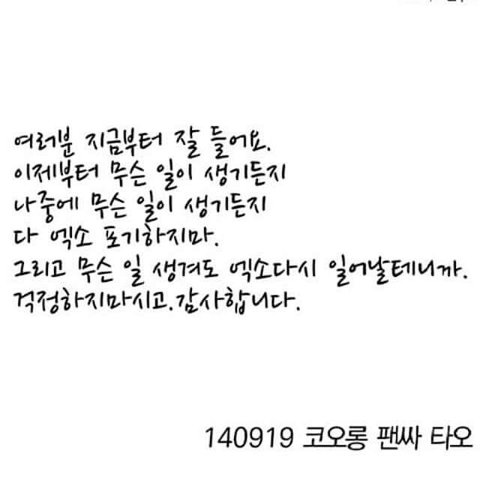 여러분 지금부터 잘 들어요.
이제부터 무슨 일이 생기든지
나중에 무슨 일이 생기든지
다 엑소 포기하지마.
그리고 무슨 일 생겨도 엑소다시 일어날테니까.
걱정하지마시고.감사합니다.
140919 코오롱 팬싸 타오